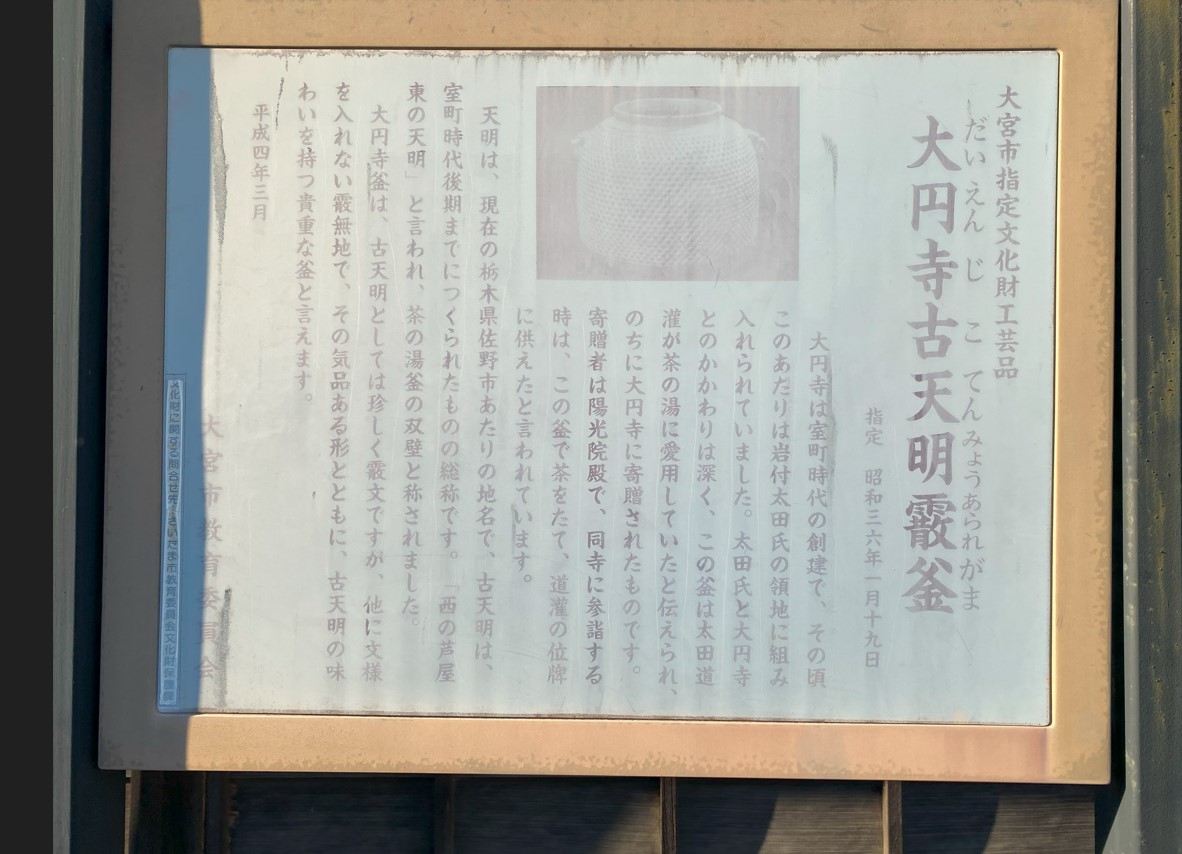 大宮市指定文化財工芸品
だいえんじこてんみょうあられがま
大円寺古天明霰釜
指定 昭和三六年一月十九日
大円寺は室町時代の創建で、その頃
このあたりは岩付太田氏の領地に組み
入れられていました。太田氏と大円寺
とのかかわりは深く、この釜は太田道
灌が茶の湯に愛用していたと伝えられ、
のちに大円寺に寄贈されたものです。
寄贈者は陽光院殿で、同寺に参詣する
時は、この釜で茶をたて、道灌の位牌
に供えたと言われています。
天明は、現在の栃木県佐野市あたりの地名で、古天明は、
室町時代後期までにつくられたものの総称です。「西の芦屋
東の天明」と言われ、茶の湯釜の双壁と称されました。
大円寺釜は、古天明としては珍しく霰文ですが、他に文様
を入れない霰無地で、その気品ある形とともに、古天明の味
わいを持つ貴重な釜と言えます。
平成四年三月
大宮市教育委員会
文化財に関する問合せ先 さいたま市教育委員会文化財保護課